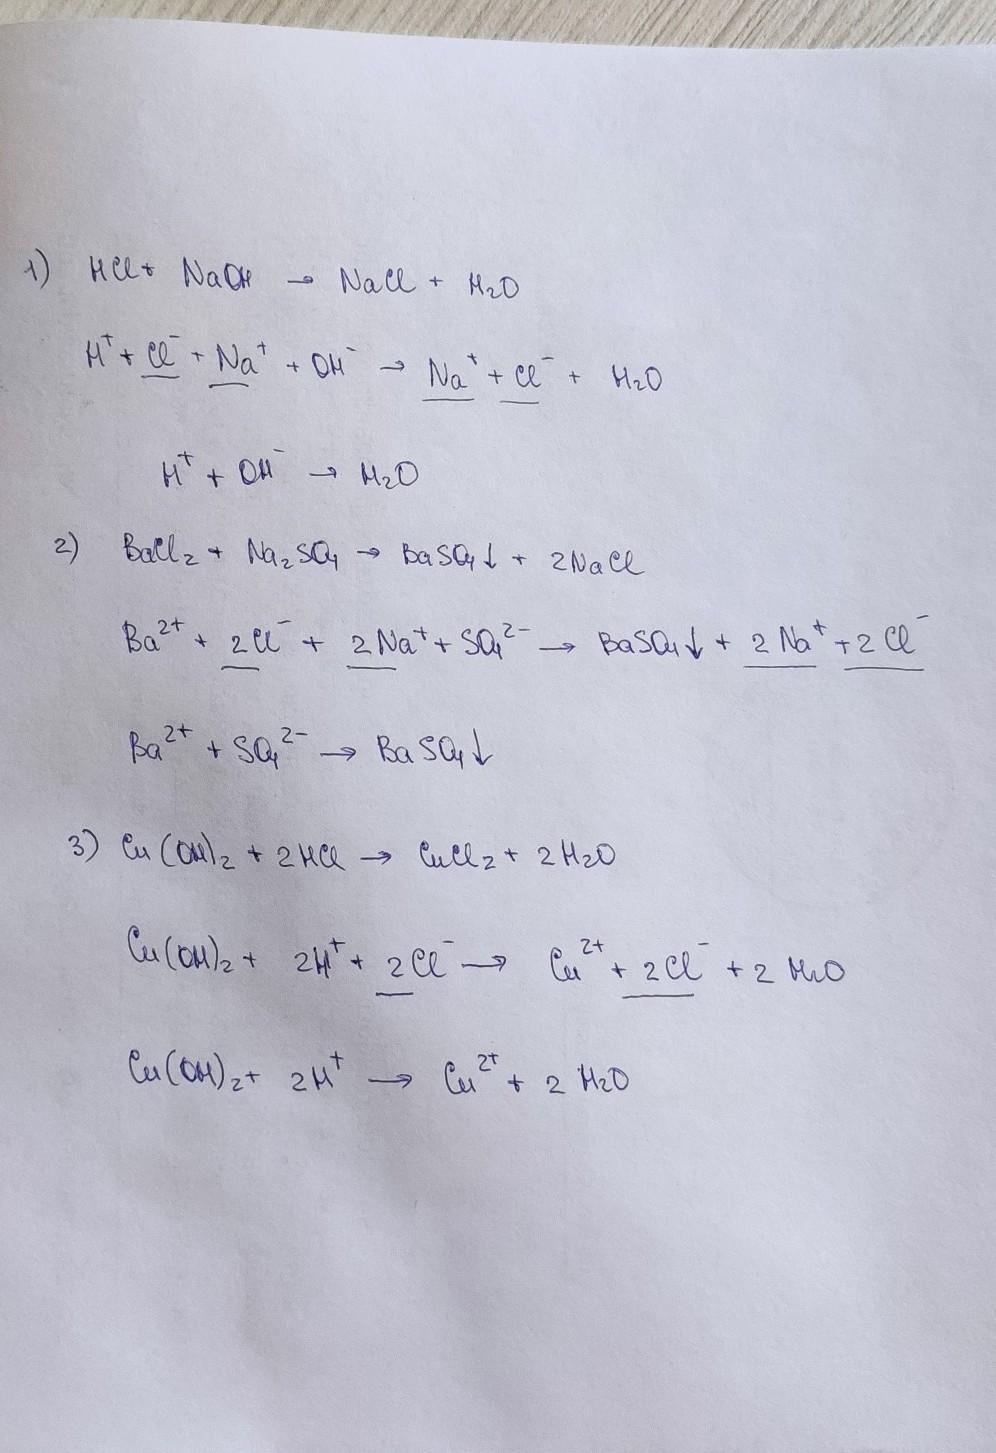 1) HCl + NaOH → NaCl + H₂O
H⁺ + Cl⁻ + Na⁺ + OH⁻ → Na⁺ + Cl⁻ + H₂O
H⁺ + OH⁻ → H₂O
2) BaCl₂ + Na₂SO₄ → BaSO₄↓ + 2NaCl
Ba²⁺ + 2Cl⁻ + 2Na⁺ + SO₄²⁻ → BaSO₄↓ + 2Na⁺ + 2Cl⁻
Ba²⁺ + SO₄²⁻ → BaSO₄↓
3) Cu(OH)₂ + 2HCl → CuCl₂ + 2H₂O
Cu(OH)₂ + 2H⁺ + 2Cl⁻ → Cu²⁺ + 2Cl⁻ + 2H₂O
Cu(OH)₂ + 2H⁺ → Cu²⁺ + 2H₂O